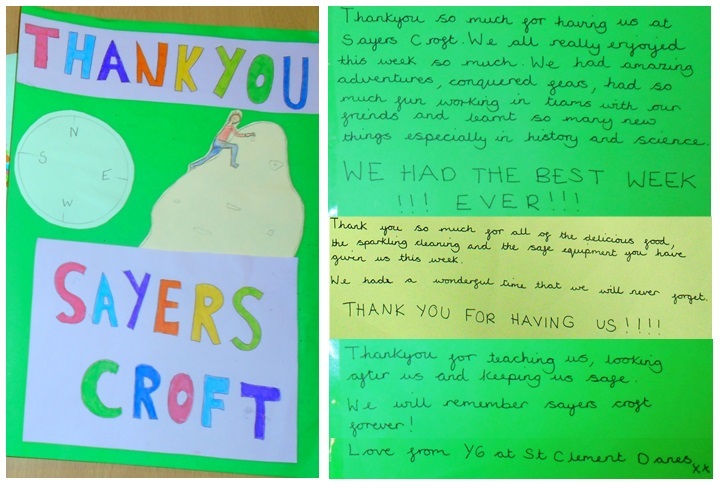 THANKYOU
N
S
E
W
SAYERS
CROFT
Thankyou so much for having us at
Sayers Croft. We all really enjoyed
this week so much. We had amazing
adventures, conquered fears, had so
much fun working in teams with our
friends and learnt so many new
things especially in history and science.
WE HAD THE BEST WEEK
!!! EVER!!!
Thank you so much for all of the delicious food,
the sparkling cleaning and the safe equipment you have
given us this week.
We hade a wonderful time that we will never forget.
THANK YOU FOR HAVING US!!!!
Thankyou for teaching us, looking
after us and keeping us safe.
We will remember sayers croft
forever!
Love from Y6 at St Clement Danes xx